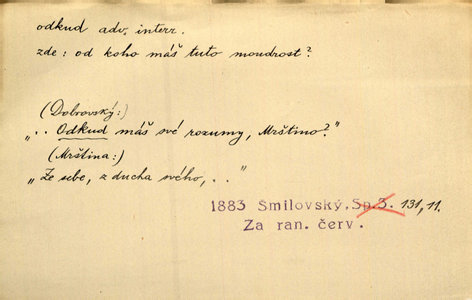 odkud adv. interr.
zde: od koho máš tuto moudrost?
(Dobrovský:)
„.. Odkud máš své rozumy, Mrštino?"
(Mrština:)
„Ze sebe, z ducha svého, .. "
1883 Šmilovský, Sp. 3. 131, 11.
Za ran. červ.